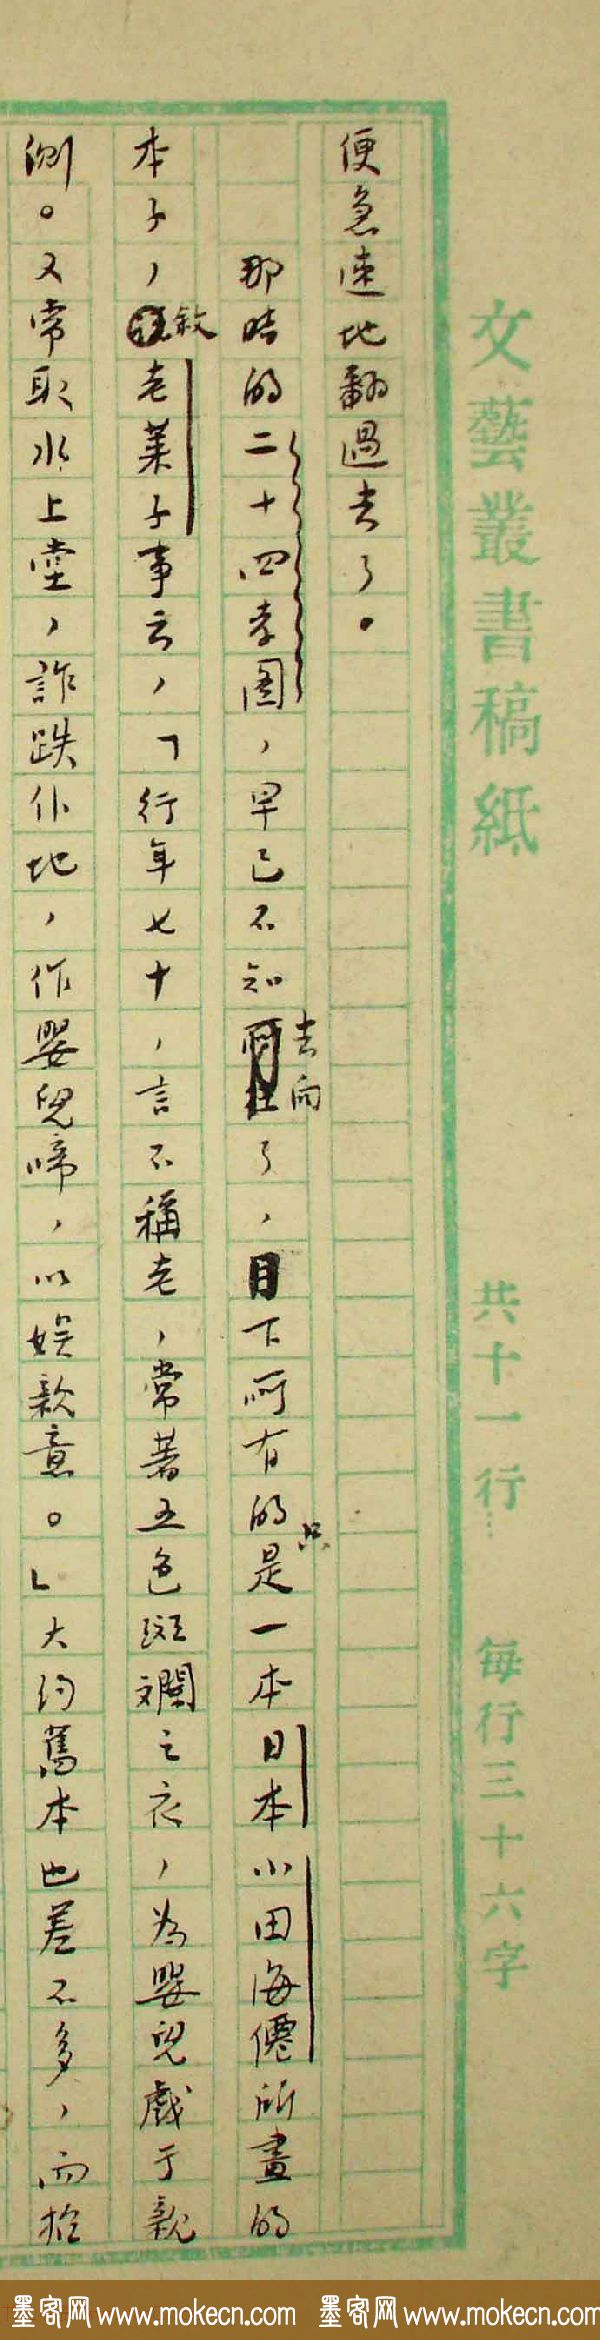 文藝叢書稿紙 共十一行 每行三十六字
便急速地翻過去了。
那時的二十四孝圖，早已不知去向了，目下所有的只是一本日本小田海僊所畫的
本子，敘老萊子事云，「行年七十，言不稱老，常著五色斑斕之衣，為嬰兒戲于親
側。又常取水上堂，詐跌仆地，作嬰兒啼，以娛親意。」大約舊本也差不多，而招
墨客网 www.mokecn.com 墨客网 www.mokecn.com